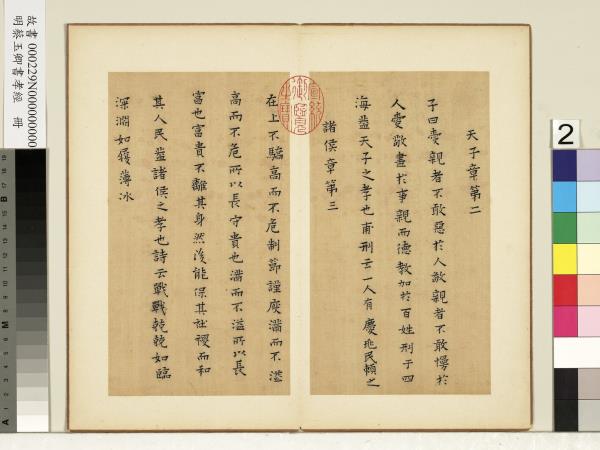 故書 000229N000000000
明蔡玉卿書孝經 冊
天子章第二
子曰愛親者不敢惡於人敬親者不敢慢於
人愛敬盡於事親而德教加於百姓刑于四
海蓋天子之孝也甫刑云一人有慶兆民賴之
諸侯章第三
宣統御覽之寶
在上不驕高而不危制節謹度滿而不溢
高而不危所以長守貴也滿而不溢所以長
富也富貴不離其身然後能保其社稷而和
其人民蓋諸侯之孝也詩云戰戰兢兢如臨
深淵如履薄冰
2